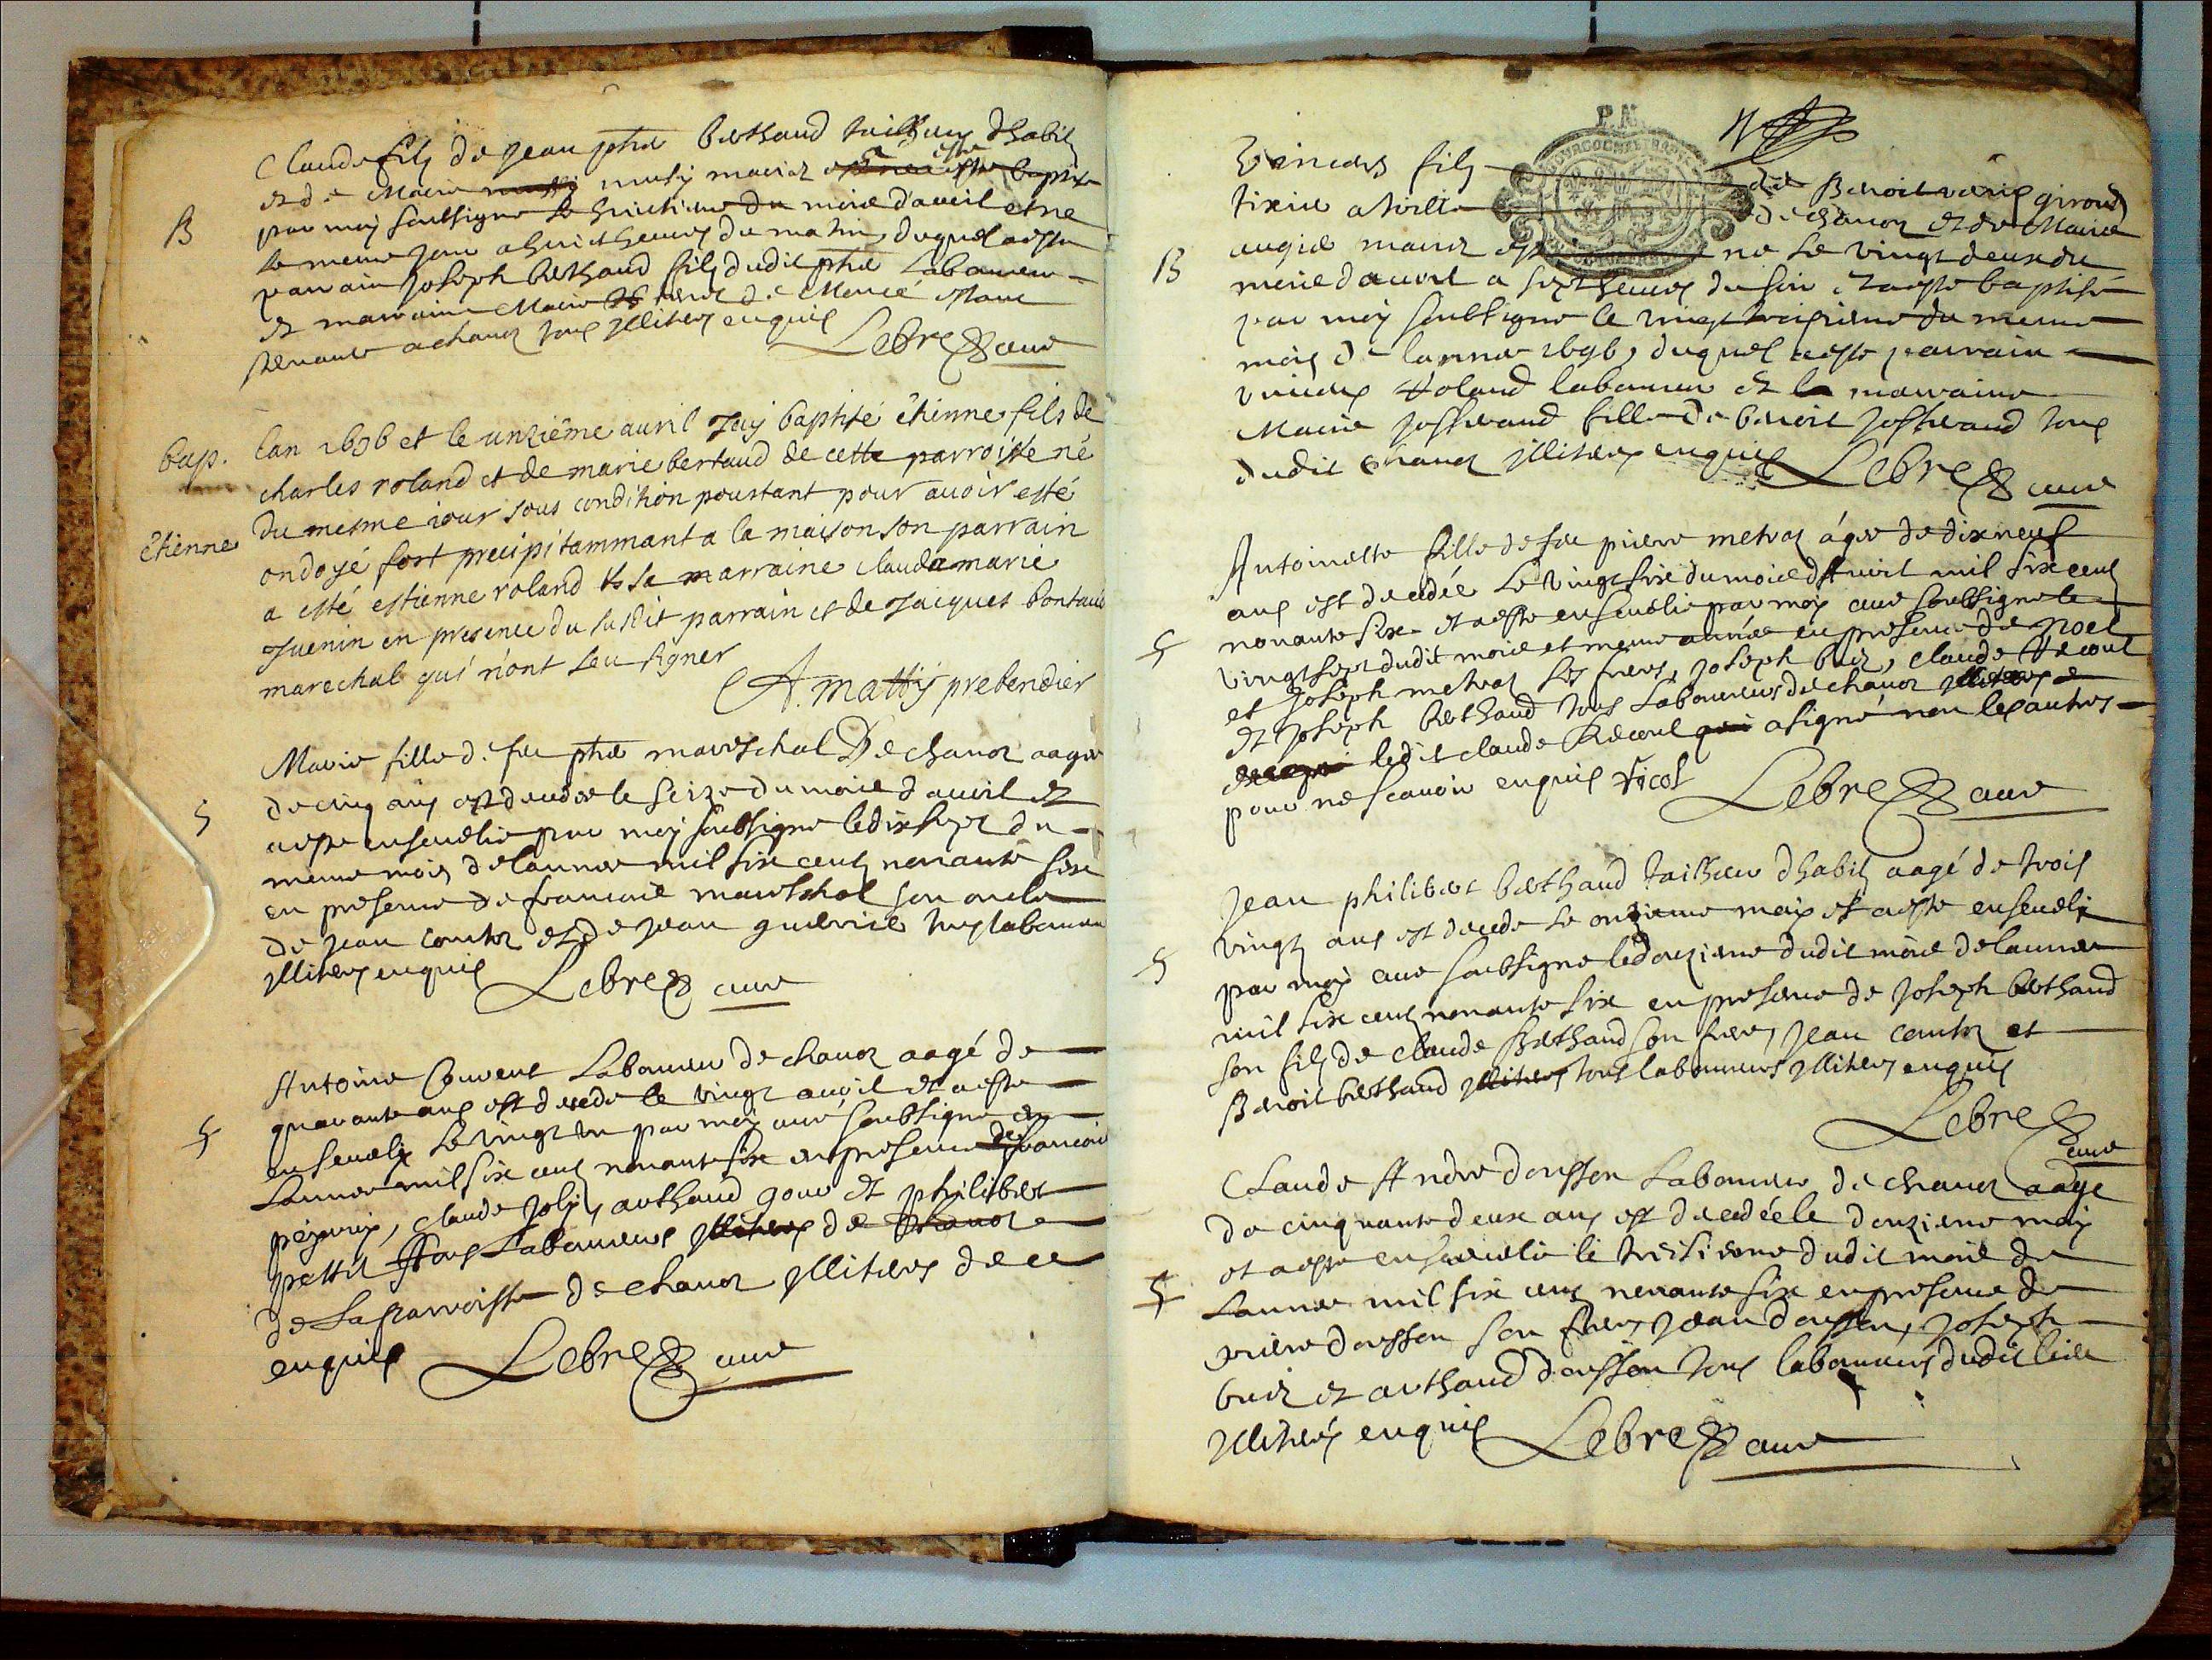 Claude fils de Jean phe berthaud tailleur dhabis
et de Marie muty mariez a esté baptise
B
par moy soubsigne le huictieme du mois d'avril et ne
le meme jour a huict heures du matin, duquel a esté
parrain Joseph berthaud fils dudit phe Laboureur
et marraine Marie de
demeurante a chanoz tous illiteres enquis
Lebre cure
bap. lan 1696 et le unzième auril Jay baptisé étienne fils de
charles roland et de marie bertaud de cette parroisse né
du mesme iour sous condition pourtant pour auoir esté
étienne
ondoyé fort precipitammant a la maison son parrain
a esté estienne roland & sa marraine claudamarie
Juenin en presence du susdit parrain et de Jacques bontaud
marechal qui n'ont seu signer
A. matty prebendier
Marie fille de feu phe mareschal De chanoz aagee
5
de cinq ans est decedee le seize du mois davril et
a este ensevelie par moy soubsigne le dix sept du
meme mois de lannee mil six cens nonante six
en presence de francois mareschal son oncle
de Jean comtoz et de Jean guerrie tous laboureurs
illiteres enquis
Lebre cure
Antoine Convent Laboureur de chanoz aagé de
5
quarante ans est decede le vingt avril et a este
ensevely le vingt un par moy curé soubsigne en
Lannee mil six cens nonante six en presence de francois
pégouriz, claude Joly, arthaud gour et philibert
pettit tous Laboureurs illiteres de chanoz
de La parroisse de chanoz illiteres de ce
enquis
Lebre cure
P.N.
Vincens fils de Benoit giroud
tixier a toille de chanoz et de Marie
B
mariez est ne le vingt deux du
mois davril a sept heures du soir et a este baptise
par moy soubsigne le vingt troisieme du meme
mois de lannee 1696, duquel a este parrain
vincens Roland laboureur et la marraine
Marie Josserand fille de benoit Josserand tous
dudit chanoz illiteres enquis
Lebre cure
Antoinette fille de feu pierre metraz agee de dix neuf
ans est decedée le vingt six du mois davril mil six cens
5
nonante six et a este ensevelie par moy cure soubsigne le
vingt sept dudit mois et meme année en presence de noel
et Joseph metraz ses freres, Joseph buiz, claude Recoul
et Joseph berthaud tous Laboureurs de chanoz
ledit claude Recoul a signé non les autres
pour ne scavoir enquis
Lebre cure
Jean philibert berthaud tailleur dhabis aagé de trois
vingt ans est decede le onzieme may et a este ensevely
5
par moy cure soubsigne le douzieme dudit mois de lannee
mil six cens nonante six en presence de Joseph berthaud
son fils de claude Berthaud son frere, Jean comtoz et
Benoit berthaud illiteres tous laboureurs illiteres enquis
Lebre
cure
Claude Andre donsson Laboureur de chanoz aage
de cinquante deux ans est decedée le douzieme may
et a este ensevelie le treisieme dudit mois de
5
Lannee mil six cens nonante six en presence de
pierre donsson son frere, Jean donsson, Joseph
buiz et arthaud donsson tous laboureurs dudit lieu
illiteres enquis
Lebre cure